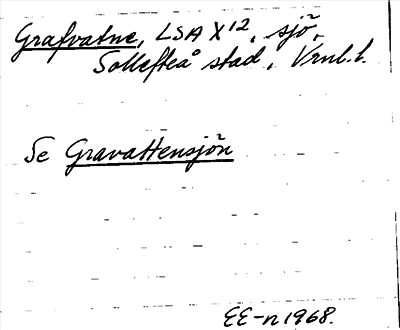 Grafvatne, LSA X12, sjö,
Sollefteå stad, Vrnl.l.
Se Gravattensjön
EE-n1968.